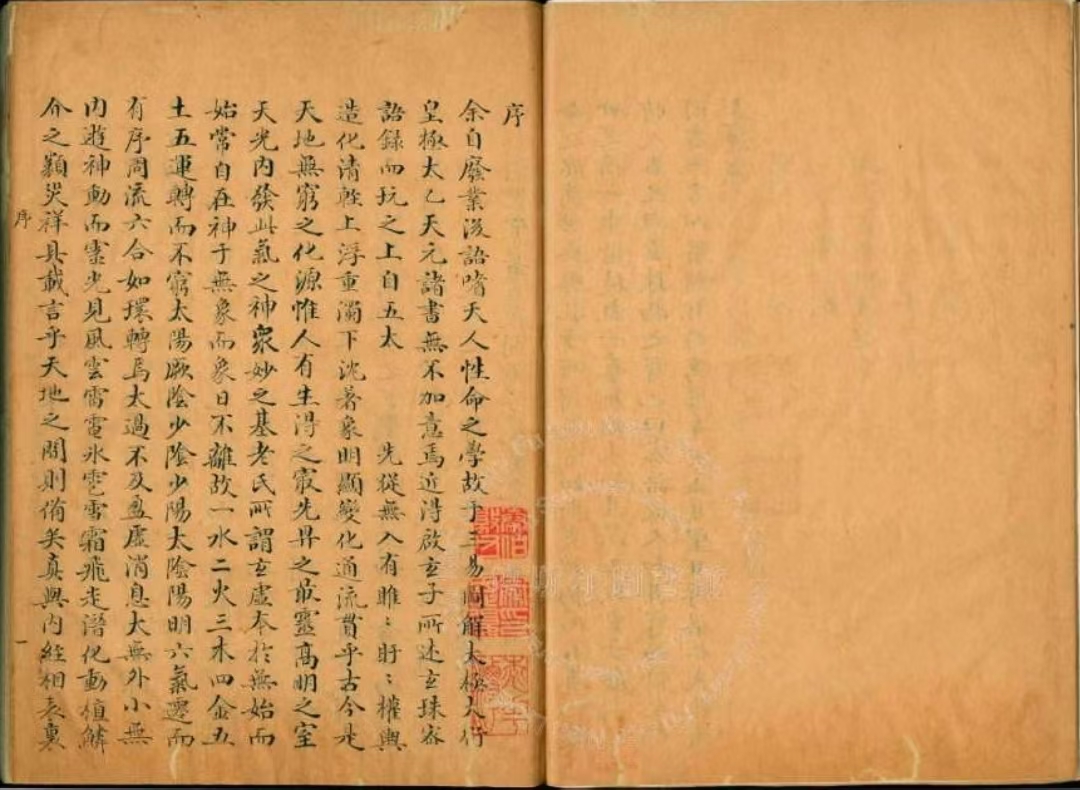 序
余自廢業後語嗜天人性命之學故于三易圖解太極大衍
皇極太乙天元諸書無不加意焉近得啟玄子所述玄珠密
語錄而玩之上自五太 先從無入有雎〻盱〻權輿
造化清輕上浮重濁下沈著象明顯變化通流貫乎古今是
天地無窮之化源惟人有生得之最先昇之最靈高明之室
天光內發此氣之神衆妙之基老氏所謂玄虛本於無始而
始常自在神于無象而象日不離故一水二火三木四金五
土五運轉而不窮太陽厥陰少陰少陽太陰陽明六氣遷而
有序周流六合如環轉焉太過不及盈虛消息大無外小無
內遊神動而靈光見風雲雷電氷雹雪霜飛走潛化動植鱗
介之類災祥具載言乎天地之間則備矣真與內經相表裏
序
一